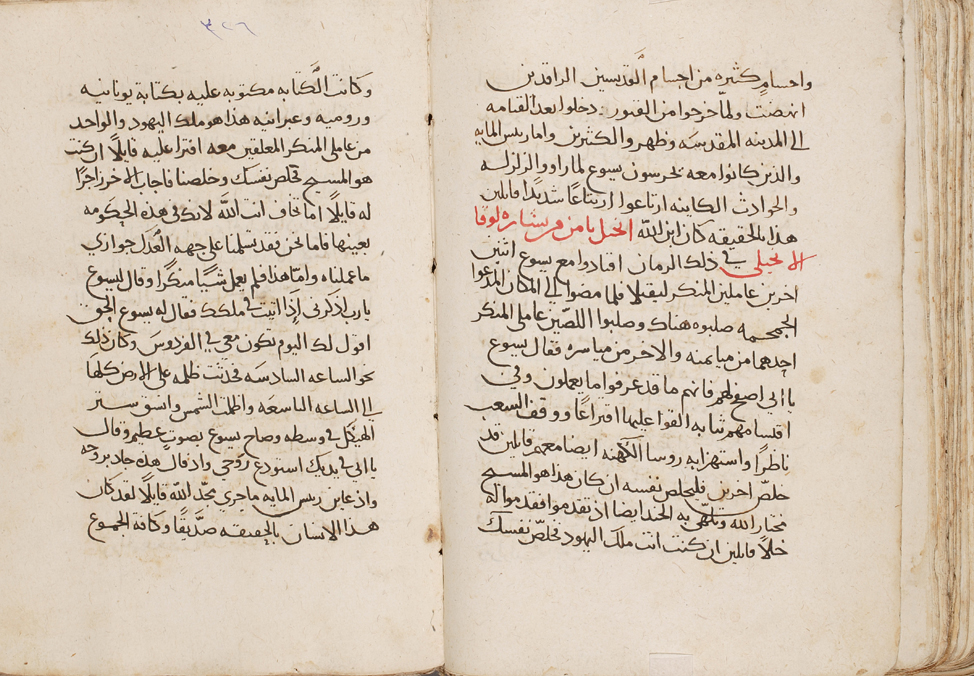 واجسام كثيره من اجسام القديسين الراقدين
انبعثت ولما خرجوا من القبور دخلوا بعد القيامه
الى المدينه المقدسه وظهروا لكثيرين واما ريس المايه
والذين كانوا معه يحرسون يسوع لما راوا الزلزله
والحوادث الكاينه ارتاعوا ارتياعًا شديدًا قايلين
هذا بالحقيقه كان ابن الله الانجيل يا من من بشاره لوقا
الانجيلي في ذلك الزمان اقتادوا مع يسوع اثنين
اخرين عاملين المنكر ليقتلا فلما مضوا الى المكان المدعوا
الجمجمه صلبوه هناك وصلبوا اللصّين عاملي المنكر
احدهما من ميامنه والاخر من مياسره فقال يسوع
يا ابي اصفح لهم فانهم ما قد عرفوا ما يعملون وفي
اقتسامهم ثيابه القوا عليها اقتراعًا ووقف الشعب
ناظرًا واستهزا به روسا الكهنه ايضا معهم قايلين قد
خلص اخرين فليخلص نفسه ان كان هذا هو المسيح
مختار الله وتلهى به الجند ايضا اذ تقدموا فقدموا له
خلًا قايلين ان كنت انت ملك اليهود فخلّص نفسك
٣٢٦
وكانت الكتابه مكتوبه عليه بكتابة يونانيه
وروميه وعبرانيه هذا هو ملك اليهود والواحد
من عاملي المنكر المعلقين معه افترا عليه قايلًا ان كنت
هو المسيح فخلص نفسك وخلصنا فاجاب الاخر زاجرًا
له قايلًا اما تخاف انت الله لانك في هذه الحكومه
بعينها فاما نحن فقد تسلمنا على جهه العدل جوازي
ما عملناه واما هذا فلم يعمل شيًا منكرًا وقال ليسوع
يا رب اذكرني اذا اتيت في ملكك فقال له يسوع الحق
اقول لك اليوم تكون معي في الفردوس وكان ذلك
نحو الساعه السادسه فحدثت ظلمه على الارض كلها
الى الساعه التاسعه واظلمت الشمس وانشق ستر
الهيكل في وسطه وصاح يسوع بصوت عظيم وقال
يا ابي في يديك استودع روحي واذ قال هذه جاد بروحه
واذ عاين ريس المايه ما جرى مجّد الله قايلًا لقد كان
هذا الانسان بالحقيقه صدّيقًا وكافة الجموع